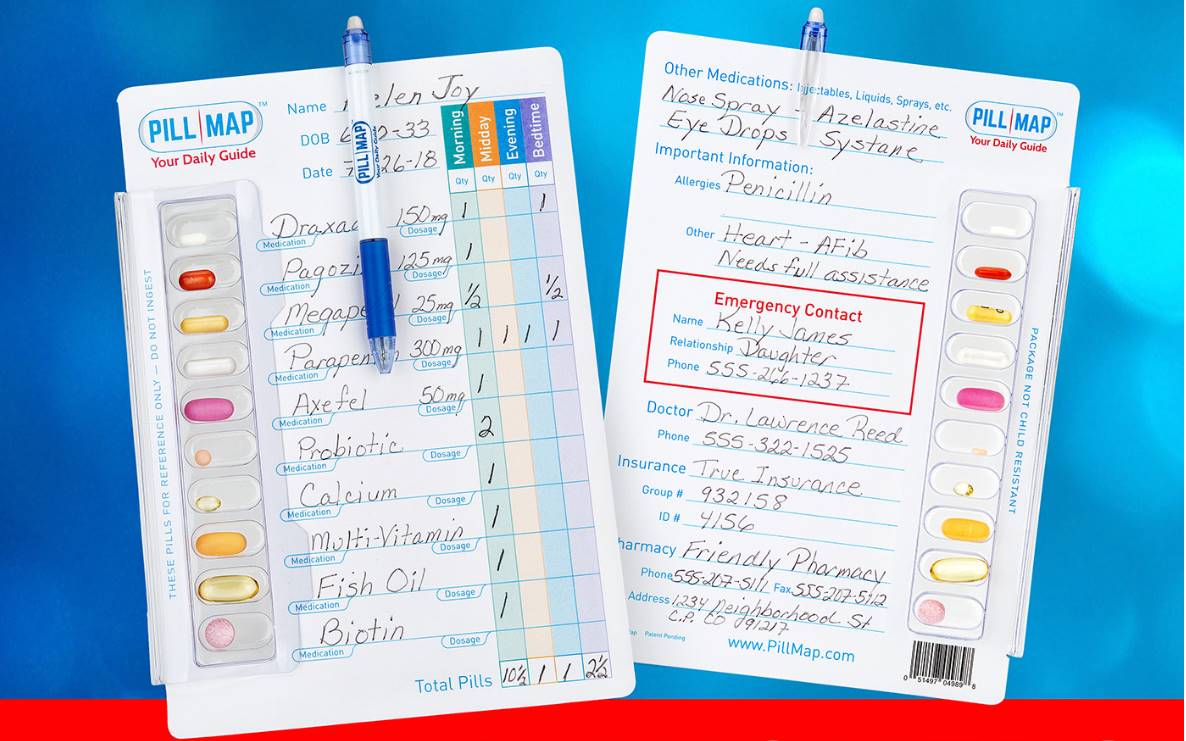 PILL MAP™
Your Daily Guide
Name Joy
DOB
Date
PILL MAP
Your Daily Guide
Morning Midday Evening Bedtime
Qty Qty Qty Qty
150mg 1 1
Medication Dosage
125mg 1
Medication Dosage
25mg 1/2 1/2
Medication Dosage
300mg 1 1 1 1
Medication Dosage
Axefel 50mg 1
Medication Dosage
Probiotic 2
Medication Dosage
Calcium 1
Medication Dosage
Multi-Vitamin 1
Medication Dosage
Fish Oil 1
Medication Dosage
Biotin 1
Medication Dosage
Total Pills 10½ 1 1 2½
THESE PILLS FOR REFERENCE ONLY — DO NOT INGEST
Other Medications: Injectables, Liquids, Sprays, etc.
Nose Spray - Azelastine
Eye Drops - Systane
PILL MAP™
Your Daily Guide
Important Information:
Allergies Penicillin
Other Heart - AFib
Needs full assistance
Emergency Contact
Name Kelly James
Relationship Daughter
Phone 555-266-1237
Doctor Dr. Lawrence Reed
Phone 555-322-1525
Insurance True Insurance
Group # 932158
ID # 4156
Friendly Pharmacy
Phone 555-207-5111 Fax 555-207-5112
Address 1234 Neighborhood St
C.P. CO 091217
Patent Pending
www.PillMap.com
PACKAGE NOT CHILD RESISTANT
0 51497 04989 8